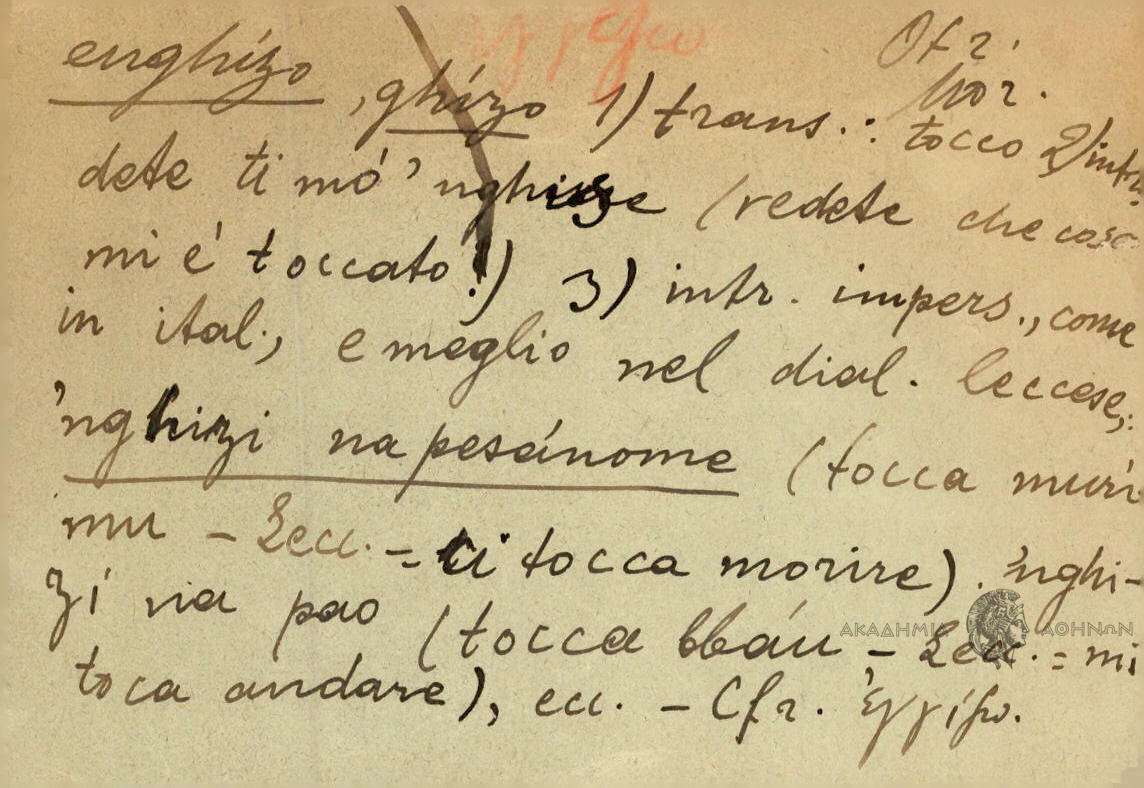 ἐγγίζω
Otr.
Mor.
enghízo, ghízo 1) trans.: tocco 2) intr.
dete ti mó 'nghise (vedete che cosa
mi é toccato!) 3) intr. impers., come
in ital., e meglio nel dial. leccese,:
'nghizi na pesánome (tocca muri
mu - Lecc. = ci tocca morire). 'nghi-
zi na pao (tocca bbáu - Lecc. = mi
toca andare), ecc. - Cfr. ἐγγίζω.
ΑΚΑΔΗΜΙΑ ΑΘΗΝΩΝ